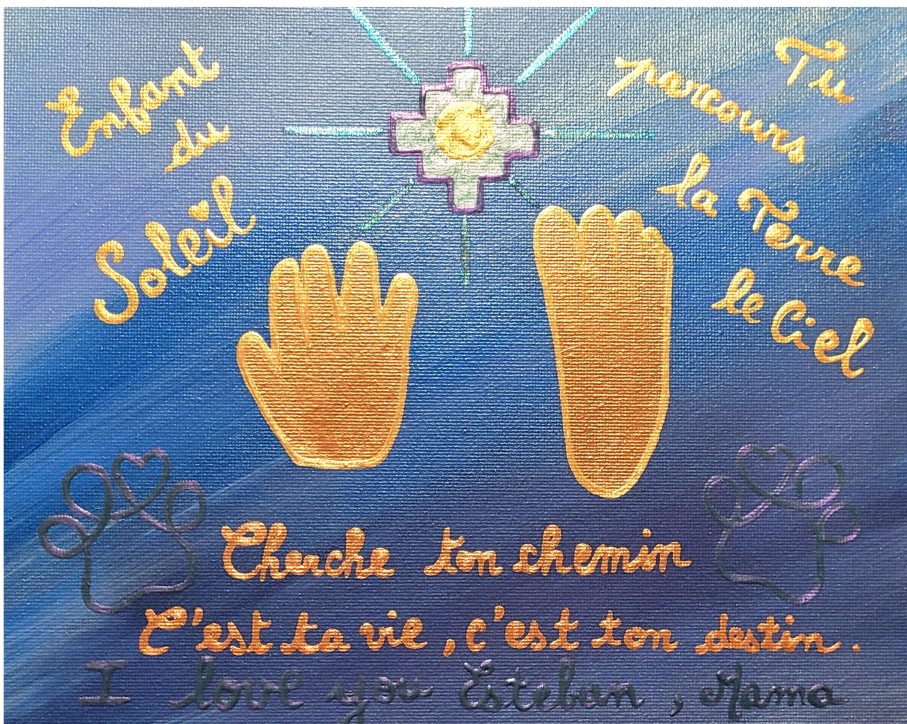 Enfant
du
Soleil
Tu
parcours
la Terre
le Ciel
Cherche ton chemin
C'est ta vie, c'est ton destin.
I love you Esteban, Mama